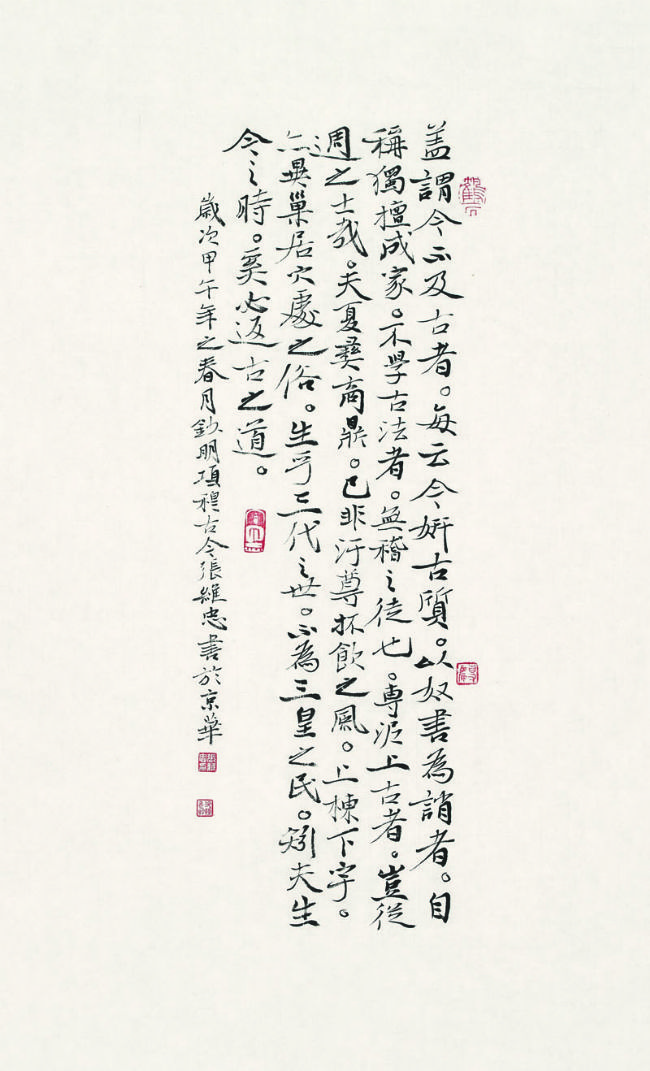 盖謂今不及古者。每云今妍古質。以奴書為誚者。自
稱獨擅成家。不學古法者。無稽之徒也。專泥上古者。豈從
週之士哉。夫夏彝商鼎。已非汙尊抔飲之風。上棟下宇。
亦異巢居穴處之俗。生乎三代之世。不為三皇之民。矧夫生
今之時。奚必返古之道。
歲次甲午年之春月鈔明項穆古今張維忠書於京華